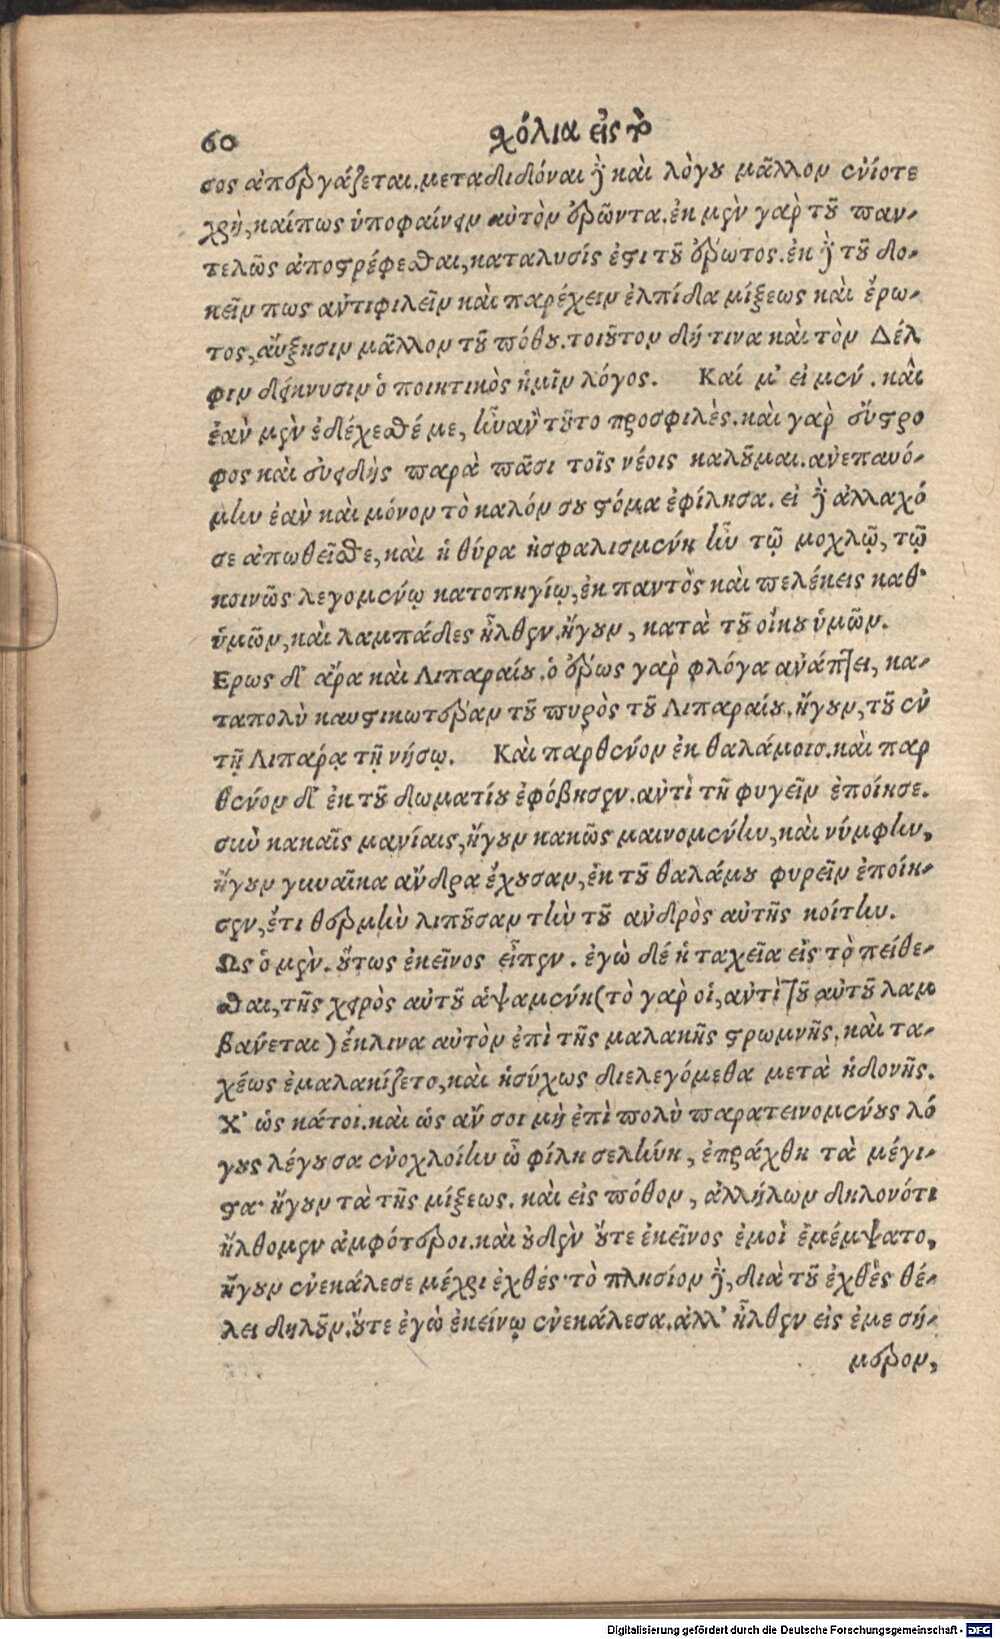 60 σχόλια εἰς τὸ
σος ἀπεργάζεται. μεταδιδόναι δὲ καὶ λόγου μᾶλλον ἐνίοτε
χρὴ, καίπως ὑποφαίνειν αὐτὸν ἐρῶντα. ἐκ μὲν γὰρ τοῦ παν-
τελῶς ἀποστρέφεσθαι, καταλυσίς ἐστι τοῦ ἔρωτος. ἐκ δὲ τοῦ δο-
κεῖν πως ἀντιφιλεῖν καὶ παρέχειν ἐλπίδα μίξεως καὶ ἔρω-
τος, αὔξησιν μᾶλλον τοῦ πόθου. τοιοῦτον δή τινα καὶ τὸν Δέλ
φιν δείκνυσιν ὁ ποιητικὸς ἡμῖν λόγος. Καί μ' εἰ μέν. καὶ
ἐὰν μὲν ἐδέχεσθέ με, ἦν ἂν τοῦτο προσφιλὲς. καὶ γὰρ εὔστρο
φος καὶ εὐειδὴς παρὰ πᾶσι τοῖς νέοις καλοῦμαι. ἀνεπαυό-
μην ἐὰν καὶ μόνον τὸ καλόν σου στόμα ἐφίλησα. εἰ δὲ ἀλλαχό
σε ἀπωθεῖσθε, καὶ ἡ θύρα ἠσφαλισμένη ἦν τῷ μοχλῷ, τῷ
κοινῶς λεγομένῳ κατοπηγίῳ, ἐκ παντὸς καὶ πελέκεις καθ'
ὑμῶν, καὶ λαμπάδες ἦλθεν. ἤγουν, κατὰ τοῦ οἴκου ὑμῶν.
Ερως δ' ἄρα καὶ Λιπαραίου. ὁ ἔρως γὰρ φλόγα ἀνάπτει, κα-
ταπολὺ καυστικωτέραν τοῦ πυρὸς τοῦ Λιπαραίου. ἤγουν, τοῦ ἐν
τῇ Λιπάρᾳ τῇ νήσῳ. Καὶ παρθένον ἐκ θαλάμοιο. καὶ παρ
θένον δ' ἐκ τοῦ δωματίου ἐφόβησεν. ἀντὶ τῆ φυγεῖν ἐποίησε.
σιωὺ κακαῖς μανίαις, ἤγουν κακῶς μαινομένην, καὶ νύμφην,
ἤγουν γυναῖκα ἄνδρα ἔχουσαν, ἐκ τοῦ θαλάμου φυρεῖν ἐποίη-
σεν, ἔτι θερμὴν λιποῦσαν τὴν τοῦ ἀνδρὸς αὐτῆς κοίτην.
Ως ὁ μὲν. οὕτως ἐκεῖνος εἶπεν. ἐγὼ δέ ἡ ταχεῖα εἰς τὸ πείθε-
σθαι, τῆς χειρὸς αὐτοῦ ἁψαμένη (τὸ γὰρ οἱ, ἀντὶ τοῦ αὐτοῦ λαμ
βάνεται) ἔκλινα αὐτὸν ἐπὶ τῆς μαλακῆς στρωμνῆς. καὶ τα-
χέως ἐμαλακίζετο, καὶ ἡσύχως διελεγόμεθα μετὰ ἡδονῆς.
Χ' ὡς κάτοι. καὶ ὡς ἄν σοι μὴ ἐπὶ πολὺ παρατεινομένους λό
γους λέγουσα ἐνοχλοίην ὦ φίλη σελήνη, ἐπράχθη τὰ μέγι-
στα· ἤγουν τὰ τῆς μίξεως. καὶ εἰς πόθον, ἀλλήλων δηλονότι
ἤλθομεν ἀμφότεροι. καὶ οὐδὲν οὔτε ἐκεῖνος ἐμοὶ ἐμέμψατο,
ἤγουν ἐνεκάλεσε μέχρι ἐχθές· τὸ πλησίον δὲ, διὰ τοῦ ἐχθὲς θέ-
λει δηλοῦν. οὔτε ἐγὼ ἐκείνῳ ἐνεκάλεσα. ἀλλ' ἦλθεν εἰς ἐμε σή-
μερον,
Digitalisierung gefördert durch die Deutsche Forschungsgemeinschaft - DFG